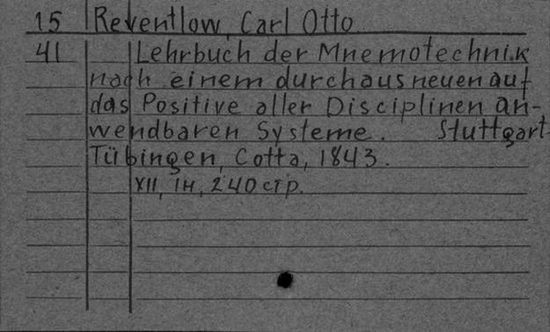 15 Reventlow, Carl Otto
41 Lehrbuch der Mnemotechnik
nach einem durchaus neuen auf
das Positive aller Disciplinen an-
wendbaren Systeme. Stuttgart
Tübingen, Cotta, 1843.
XII, IH, 240 стр.